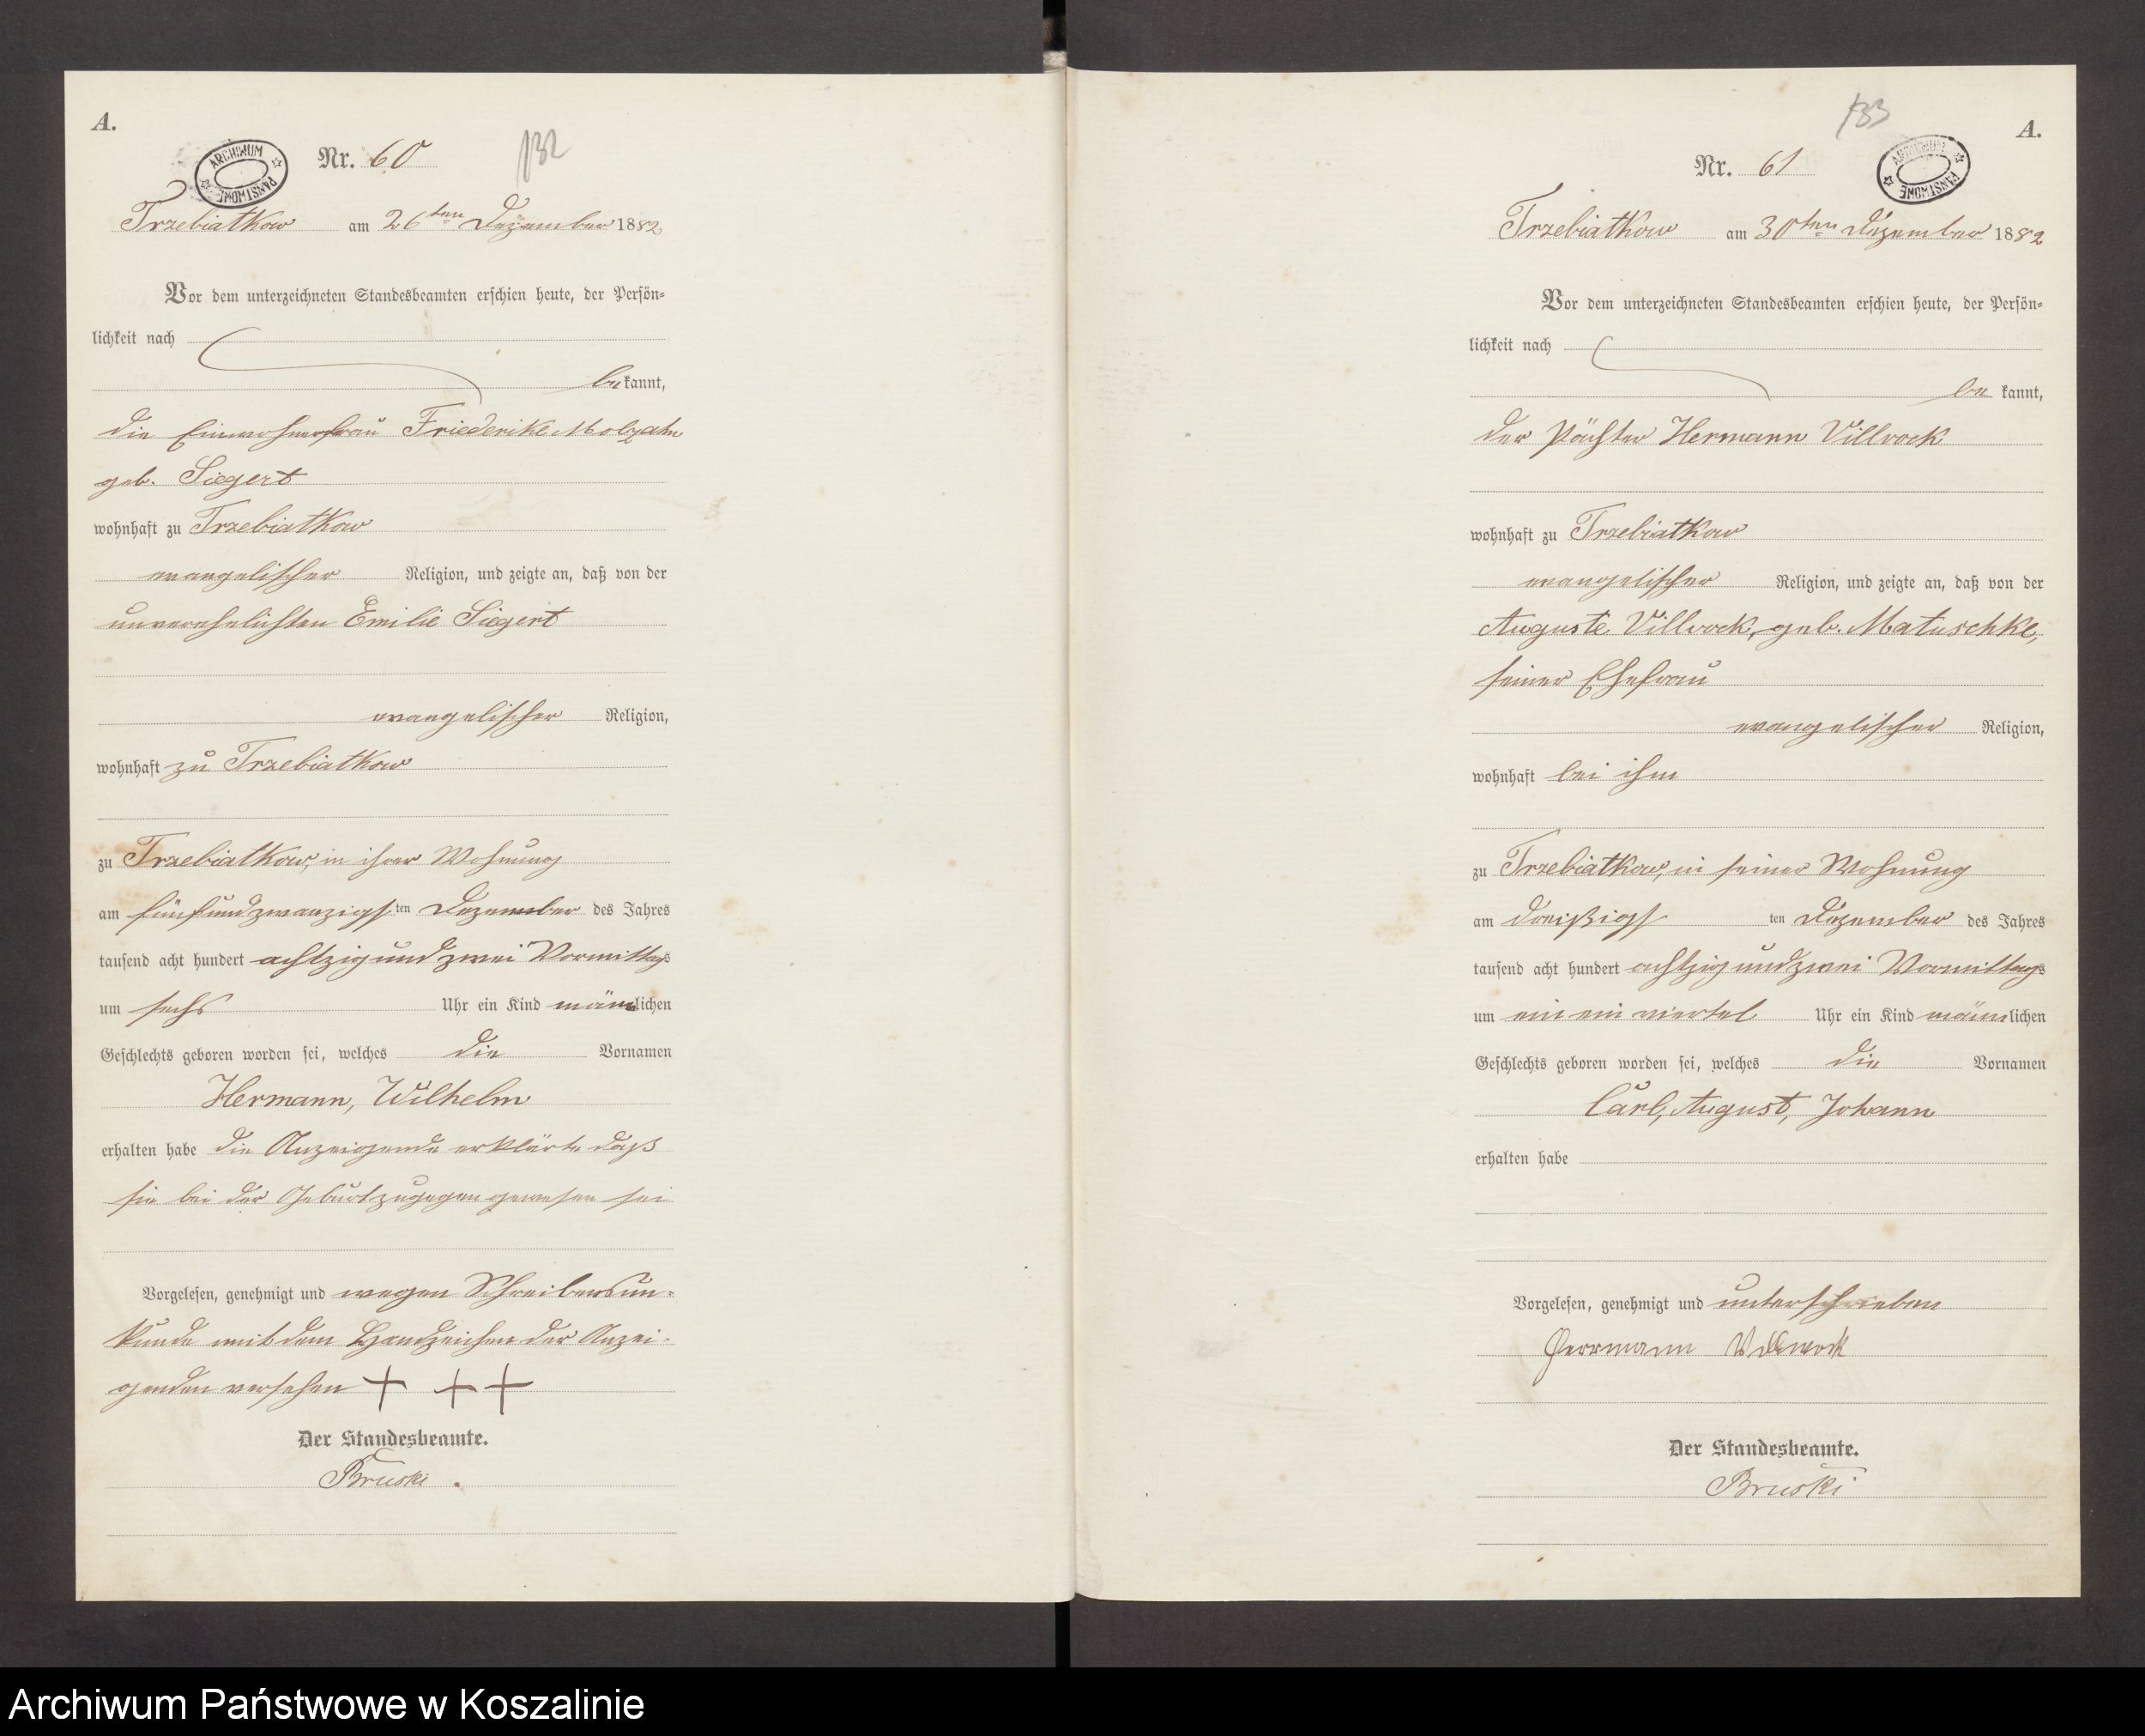 A.
ARCHIWUM PAŃSTWOWE
Nr. 60
132
Trzebiatkow am 26ten Dezember 1882
Vor dem unterzeichneten Standesbeamten erschien heute, der Persön-
lichkeit nach
bekannt,
die Einwohnerfrau Friederike Molzahn
geb. Siegert
wohnhaft zu Trzebiatkow
evangelischer Religion, und zeigte an, daß von der
unverehelichten Emilie Siegert
evangelischer Religion,
wohnhaft zu Trzebiatkow
zu Trzebiatkow, in ihrer Wohnung
am fünfundzwanzigsten Dezember des Jahres
tausend acht hundert achtzig und zwei Vormittags
um sechs Uhr ein Kind männlichen
Geschlechts geboren worden sei, welches die Vornamen
Hermann, Wilhelm
erhalten habe die Anzeigende erklärte daß
sie bei der Geburt zugegen gewesen sei
Vorgelesen, genehmigt und wegen Schreibensun-
kunde mit dem Handzeichen der Anzei-
genden versehen + + +
Der Standesbeamte.
Bruski.
133
A.
ARCHIWUM PAŃSTWOWE
Nr. 61
Trzebiatkow am 30ten Dezember 1882
Vor dem unterzeichneten Standesbeamten erschien heute, der Persön-
lichkeit nach
be kannt,
der Pächter Hermann Villvock
wohnhaft zu Trzebiatkow
evangelischer Religion, und zeigte an, daß von der
Auguste Villvock, geb. Matuschke,
seiner Ehefrau
evangelischer Religion,
wohnhaft bei ihm
zu Trzebiatkow, in seiner Wohnung
am dreißigsten Dezember des Jahres
tausend acht hundert achtzig und zwei Vormittags
um ein ein viertel Uhr ein Kind männlichen
Geschlechts geboren worden sei, welches die Vornamen
Carl, August, Johann
erhalten habe
Vorgelesen, genehmigt und unterschrieben
Herrmann
Der Standesbeamte.
Bruski
Archiwum Państwowe w Koszalinie